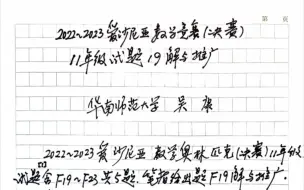 第 页
2022~2023爱沙尼亚数学竞赛(决赛)
11年级试题19解与推广
华南师范大学 吴康
2022~2023爱沙尼亚数学奥林匹克(决赛)11年级
试题[1]含F19~F23共5题.笔者给出题F19解与推广.